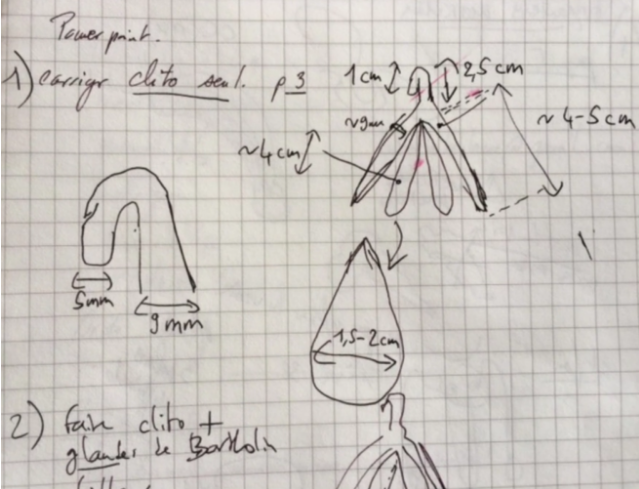 Power print.
1) corriger clito seul. p 3
1cm
2,5 cm
~9mm
~ 4-5 cm
~4cm
5mm
9mm
1,5-2cm
2) faire clito +
glandes de Bartholin